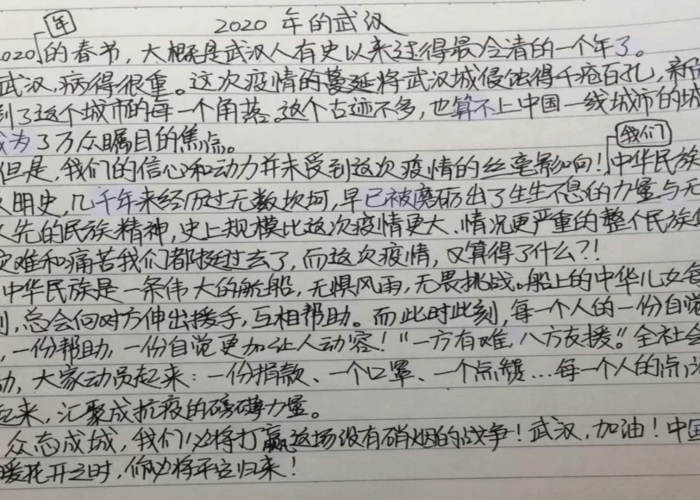 2020年的武汉
年
2020的春节，大概是武汉人有史以来过得最冷清的一个年了。
武汉，病得很重。这次疫情的蔓延将武汉城侵蚀得千疮百孔，新
到了这个城市的每一个角落。这个古迹不多，也算不上中国一线城市的城
成为了万众瞩目的焦点。
我们
但是，我们的信心和动力并未受到这次疫情的丝毫影响！中华民族
文明史，几千年来经历过无数坎坷，早已被磨砺出了生生不息的力量与无
人先的民族精神，史上规模比这次疫情更大、情况更严重的整个民族的
灾难和痛苦我们都挺过去了，而这次疫情，又算得了什么？！
中华民族是一条伟大的航船，无惧风雨，无畏挑战。船上的中华儿女每
刻，总会向对方伸出援手，互相帮助。而此时此刻，每一个人的一份自觉
，一份帮助，一份自觉更加让人动容！“一方有难，八方支援。”全社会
动，大家动员起来：一份捐款、一个口罩、一个点赞…每一个人的点点
起来，汇聚成抗疫的磅礴力量。
众志成城，我们必将打赢这场没有硝烟的战争！武汉，加油！中国
暖花开之时，你必将平安归来！